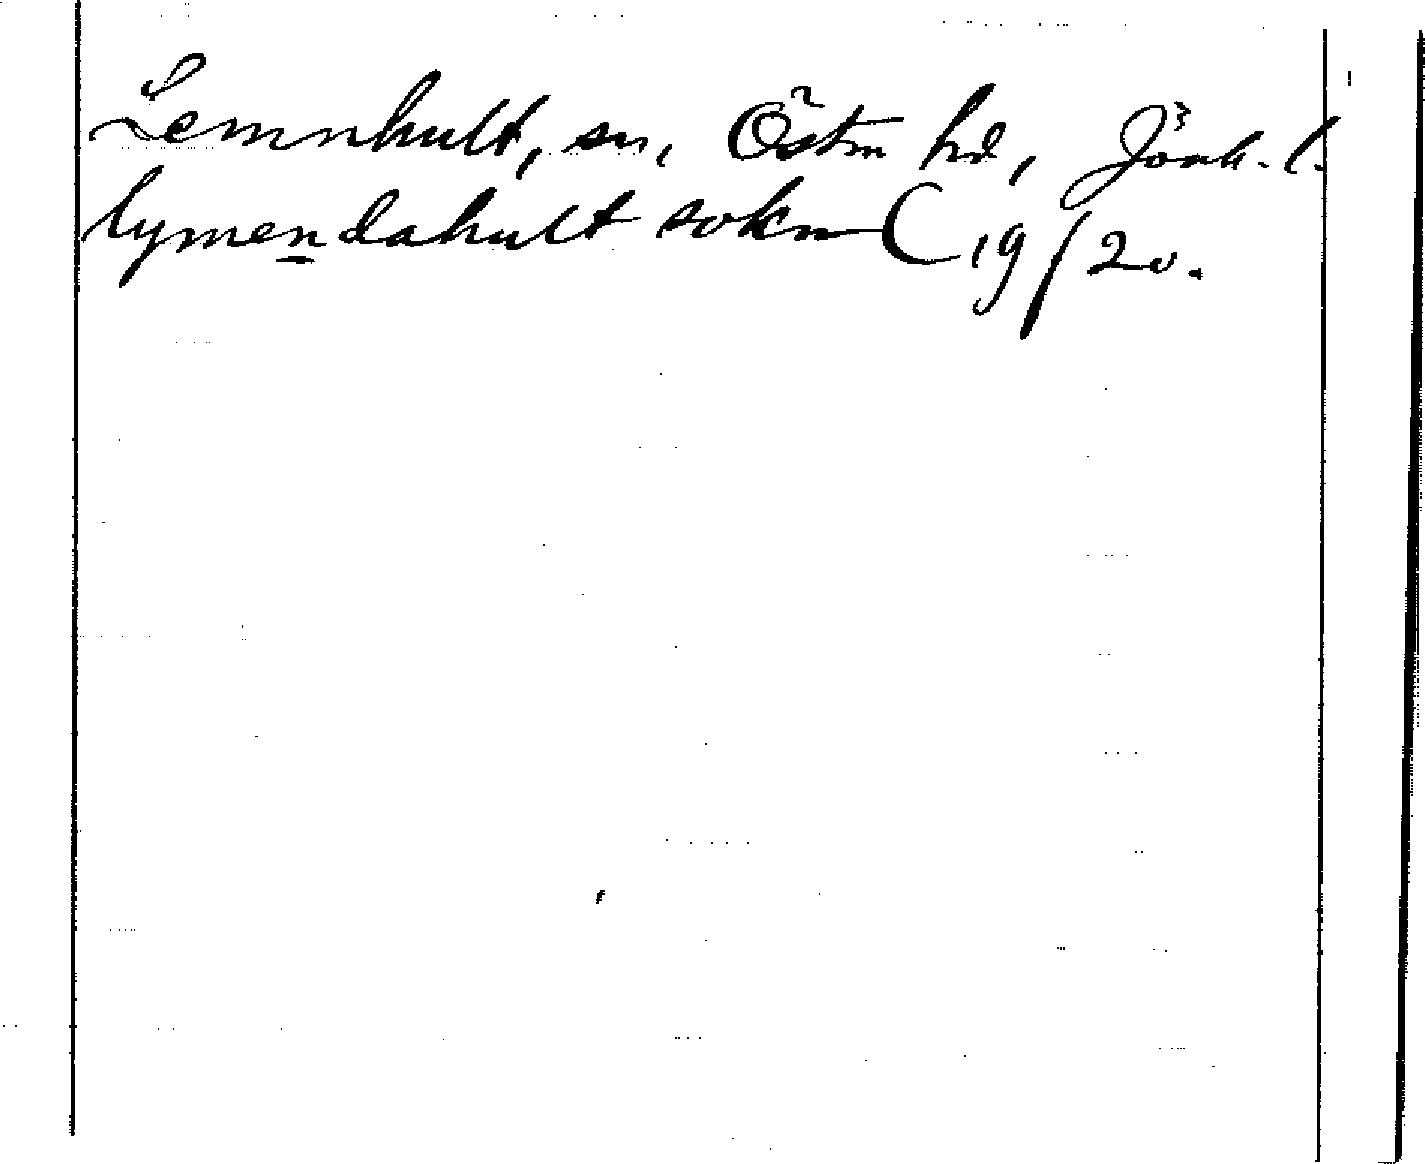 Lemnhult, sn, Östra hd, Jönk. l.
lymendahult sokn C 19/20.